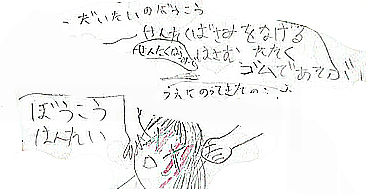 ・だいたいのぼうこう
せんたくばさみをなげる
せんたくばさみ はさむ たたく
ゴムであそぶ
うえにのってきたの・・
ぼうこう
はんたい